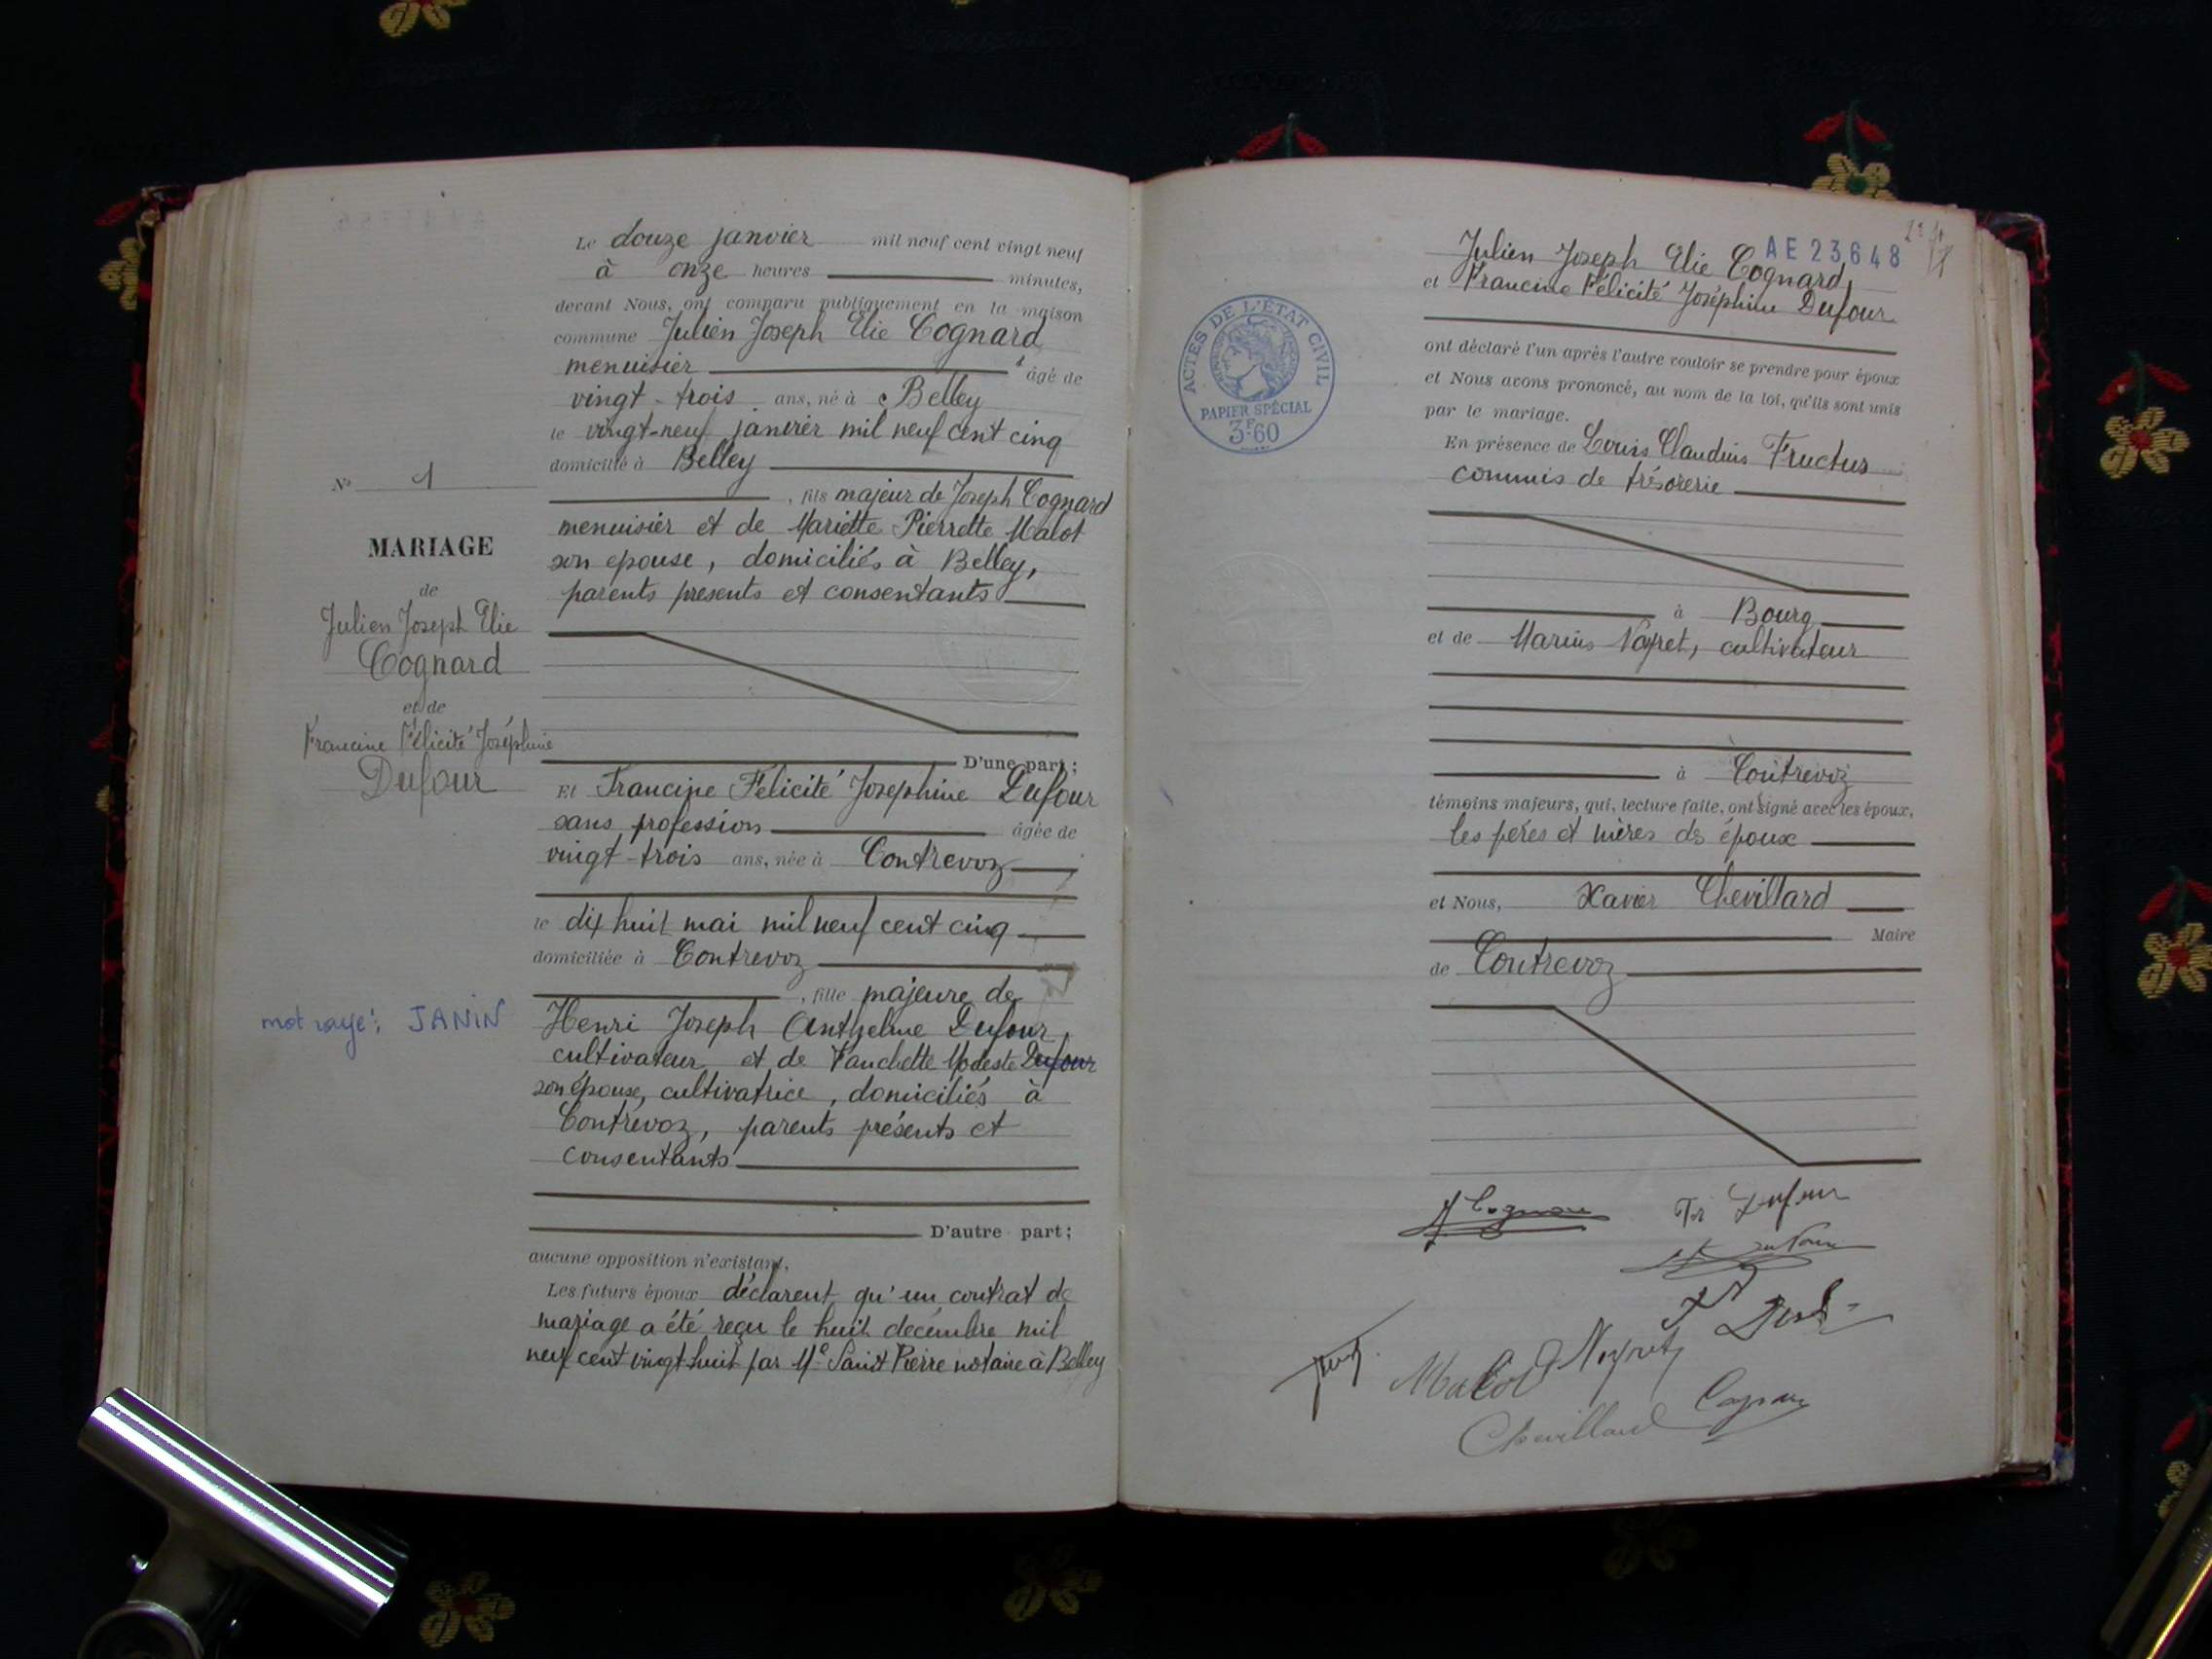 Le douze janvier mil neuf cent vingt neuf
à onze heures minutes,
devant Nous, ont comparu publiquement en la maison
commune Julien Joseph Elie Cognard
menuisier âgé de
vingt-trois ans, né à Belley
le vingt-neuf janvier mil neuf cent cinq
domicilié à Belley
, fils majeur de Joseph Cognard
menuisier et de Mariette Pierrette Malot
son epouse, domiciliés à Belley,
parents presents et consentants
D'une part;
Et Francine Félicité Josephine Dufour
sans profession âgée de
vingt-trois ans, née à Contrevoz
le dix huit mai mil neuf cent cinq
domiciliée à Contrevoz
, fille majeure de
Henri Joseph Anthelme Dufour
cultivateur et de Fanchette Modeste Dufour
son épouse, cultivatrice, domiciliés à
Contrevoz, parents présents et
consentants
D'autre part;
aucune opposition n'existant,
Les futurs époux déclarent qu'un contrat de
mariage a été reçu le huit decembre mil
neuf cent vingt huit par Me Saint Pierre notaire à Belley
No 1
MARIAGE
de
Julien Joseph Elie
Cognard
et de
Francine Félicité Joséphine
Dufour
mot rayé: JANIN
AE 23648
Julien Joseph Elie Cognard
et Francine Félicité Joséphine Dufour
ont déclaré l'un après l'autre vouloir se prendre pour époux
et Nous avons prononcé, au nom de la loi, qu'ils sont unis
par le mariage.
En présence de Louis Claudius Fructus
commis de trésorerie
à Bourg
et de Marius Neyret, cultivateur
à Contrevoz
témoins majeurs, qui, lecture faite, ont signé avec les époux,
les pères et mères des époux
et Nous, Xavier Chevillard
Maire
de Contrevoz
ACTES DE L'ÉTAT CIVIL
PAPIER SPÉCIAL
3F60
J Cognard
Fr Dufour
Dufour
Malot Neyret
Cognard
Chevillard